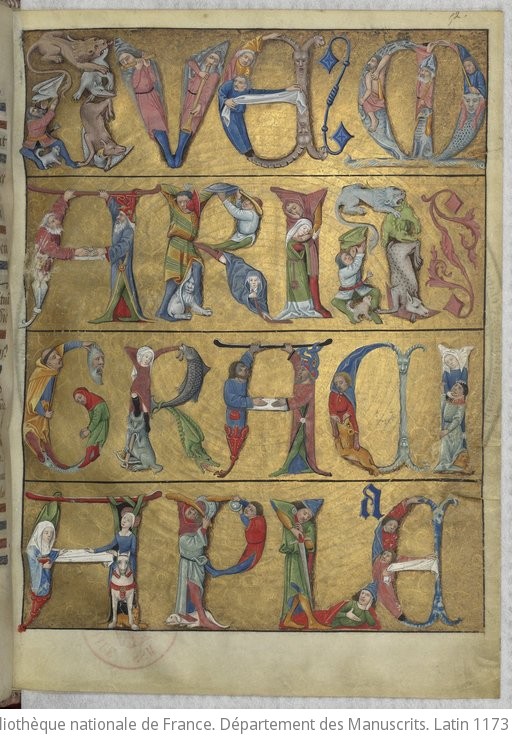 AVE: M
ARIA
GRACI
A PLEa
liothèque nationale de France. Département des Manuscrits. Latin 1173